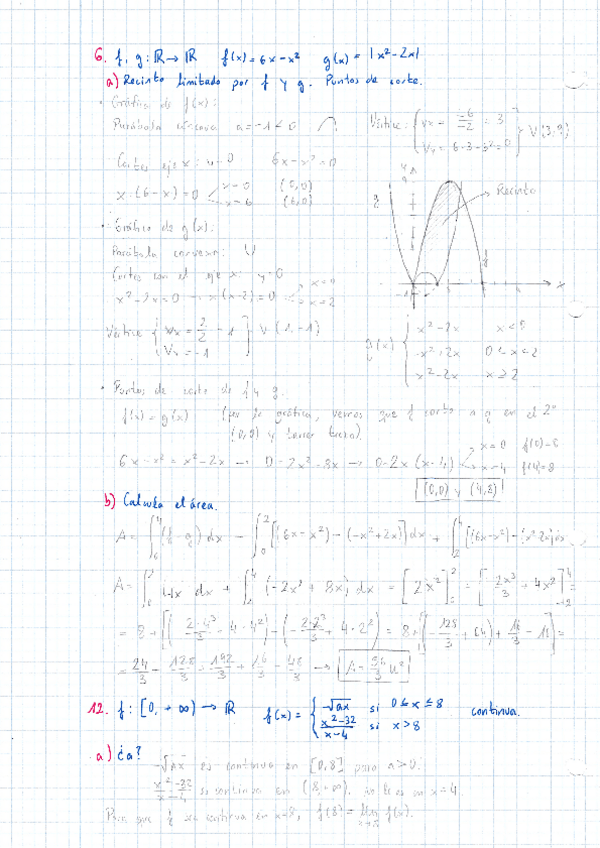 6. f, g: ℝ → ℝ f(x) = 6x - x² g(x) = |x² - 2x|
a) Recinto limitado por f y g. Puntos de corte.
• Gráfica de f(x):
Parábola cóncava a = -1 < 0
Vértice: { Vx = -6/-2 = 3
Cortes eje x: y = 0 6x - x² = 0
x · (6 - x) = 0 x = 0 (0,0)
x = 6 (6,0)
Recinto
• Gráfica de g(x):
Parábola convexa: ∪
Cortes con el eje x: y = 0
x² - 2x = 0 → x(x-2) = 0 x = 0
x = 2
Vértice { Vx = 2/2 = 1 V(1, -1)
Vy = -1
g(x) { x² - 2x x < 0
-x² + 2x 0 < x < 2
x² - 2x x ≥ 2
• Puntos de corte de f y g.
f(x) = g(x) (por la gráfica, vemos que f corta a g en el 2º
(0,0) y tercer trozo).
6x - x² = x² - 2x → 0 = 2x² - 8x → 0 = 2x(x-4) x = 0 f(0) = 0
x = 4 f(4) = 8
(0,0) y (4,8)
b) Calcula el área.
A = ∫ (f - g) dx = ∫₀² [(6x - x²) - (-x² + 2x)] dx + ∫₂⁴ [(6x - x²) - (x² - 2x)] dx
A = ∫₀² 4x dx + ∫₂⁴ (-2x² + 8x) dx = [2x²]₀² + [-2x³/3 + 4x²]₂⁴
= 8 + [(-2·4³/3 + 4·4²) - (-2·2³/3 + 4·2²)] = 8 + [-128/3 + 64 + 16/3 - 16] =
= 24/3 - 128/3 + 192/3 + 16/3 - 48/3 → A = 56/3 u²
12. f: [0, +∞) → ℝ f(x) = { √ax si 0 ≤ x ≤ 8 continua.
x²-32/x-4 si x > 8
a) ¿a?
√ax es continua en [0,8] para a > 0.
x²-32/x-4 es continua en (8, +∞), x = 4
Para que f sea continua en x = 8, f(8) = lim f(x).